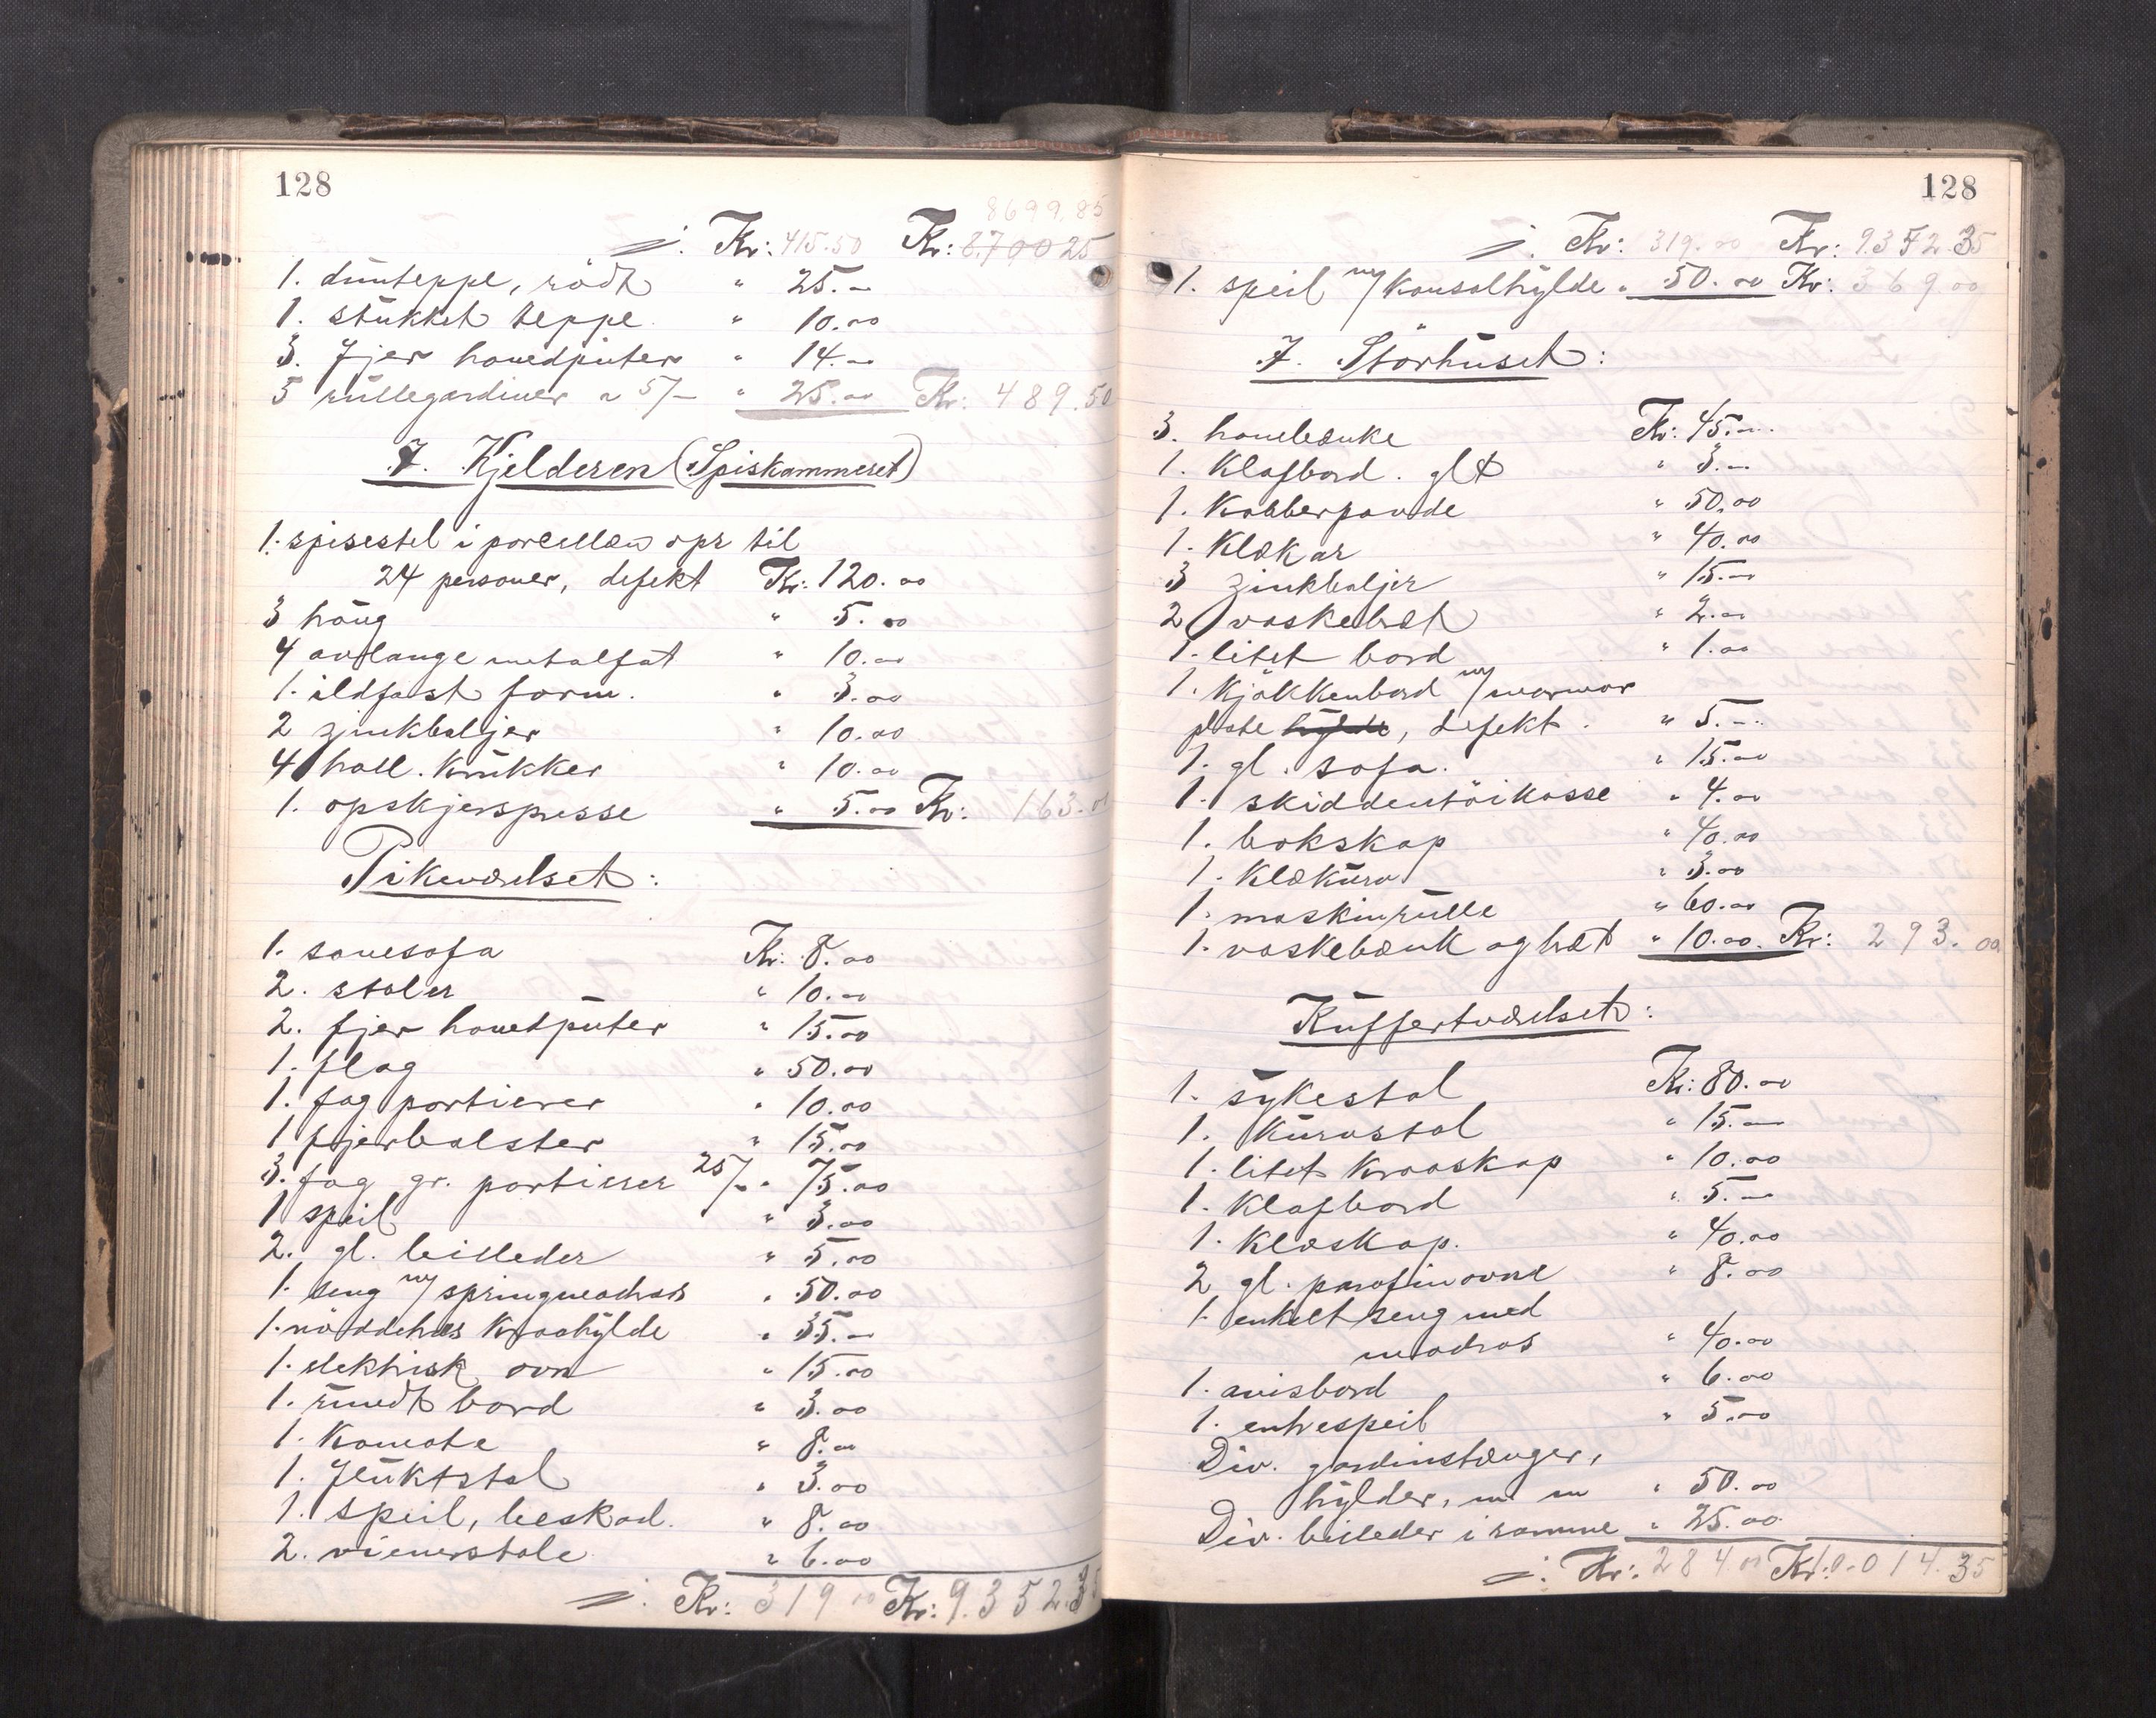 128
8699,85
Kr: 415.50 Kr: 8.70025
1. dunteppe, rödt " 25.-
1. stukket teppe " 10.00
3. Fjer hovedputer " 14.-
5 rullegardiner a 5/- " 25.00 Kr: 489.50
I. Kjelderen (Spiskammeret)
1. spisestel i porcellæn opr til
24 personer, defekt Kr: 120.00
3 " 5.00
4 avlange metalfat " 10.00
1. ildfast form. " 3.00
2 zinkbaljer " 10.00
4 holl. krukker " 10.00
1. opskjerspresse " 5.00 Kr: 163.00
Pikeværelset:
1. sovesofa Kr: 8.00
2. stoler " 10.00
2. fjer hovedputer " 15.00
1. flag " 50.00
1. fag portierer " 10.00
1 fjerbolster " 15.00
3. fag gr. portierer 25/- " 75.00
1 speil " 3.00
2. gl. billeder " 5.00
1. seng m/ springmadras " 50.00
1. nöddetræs Kroghylde " 35.-
1. elektrisk ovn " 15.00
1. rundt bord " 3.00
1. Komode " 8.00
1. Fluktstol " 3.00
1. Speil, beskad. " 8.00
2. wienerstole " 6.00
Kr: 319.00 Kr: 9.352.35
128
Kr: 319.00 Kr: 9.352.35
1. speil m/ Konsolhylde " 50.00 Kr: 369.00
I. Störhuset:
3. havebænke Kr: 45.-
1. Klafbord. glt " 3.-
1. Kobberpande " 50.00
1. Klækar " 40.00
3 zinkbaljer " 15.-
2 vaskebræt " 2.00
1. litet bord " 1.00
1. Kjökkenbord m/ marmor
plate hylde, defekt. " 5.-
1. gl. sofa. " 15.00
1. skiddentöikasse " 4.00
1. bokskap " 40.00
1. Klækurv " 3.00
1. maskinrulle " 60.00
1. vaskebænk og bræt " 10.00. Kr: 293.00
Kuffertværelset:
1. sykestol Kr: 80.00
1. Kurvstol " 15.-
1. litet Kroskap " 10.00
1. Klafbord " 5.-
1. Klæskap. " 40.00
2 gl. parafinovne " 8.00
1. enkelt seng med
madras " 40.00
1. avisbord " 6.00
1. entrespeil " 5.00
Div. gardinstænger,
hylder, m m " 50.00
Div. billeder i ramme " 25.00
Kr: 284.00 Kr: 10.014.35